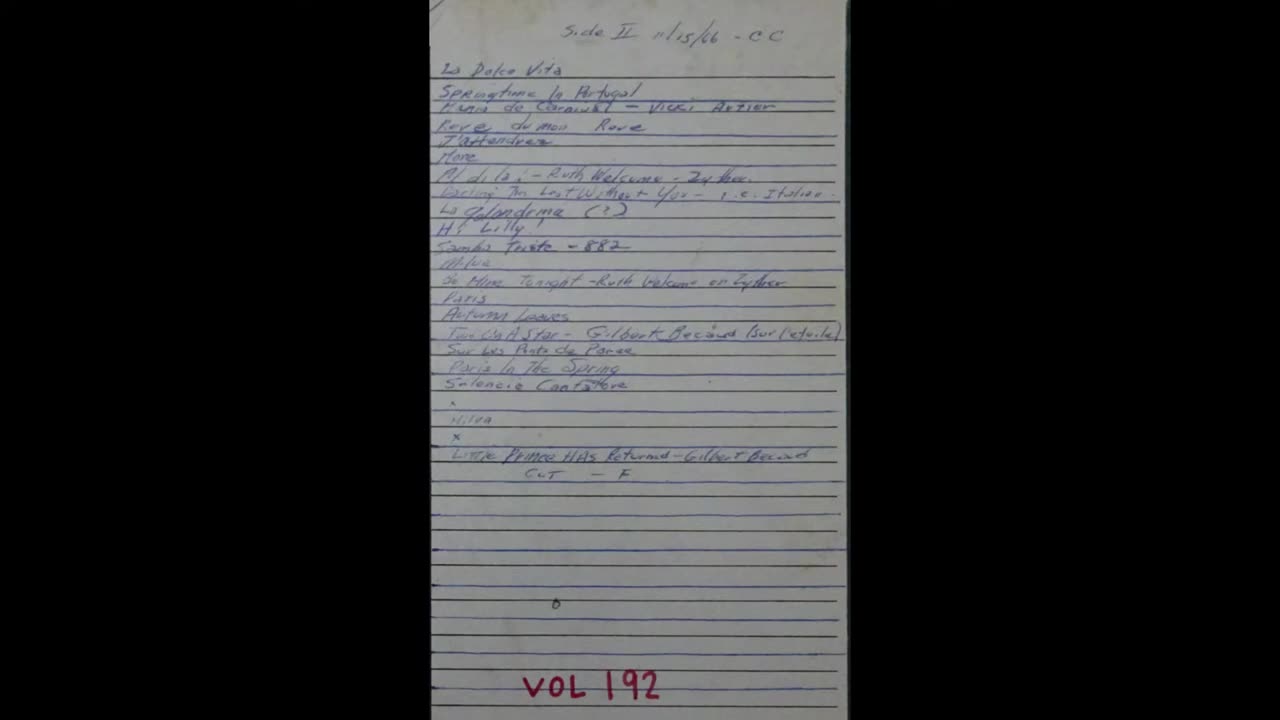 Side II 11/15/66 - CC
La Dolce Vita
Springtime In Portugal
de Carnival - Vicki
Reve du mon Reve
J'attendrez
More
Al di la; - Ruth Welcome - Zyther.
Darling I'm Lost Without You - i.e. Italian.
La golandrina (?)
Hi Lilly!
Samba Triste - 882
Milva
Be Mine Tonight - Ruth Welcome on Zyther
Paris
Autumn Leaves
Star - Gilbert Becaud (sur l'etoile)
Sur Les Ponts de Paree
Paris In The Spring
x
Milva
x
Little Prince HAs Returned - Gilbert Becaud
CUT - F
VOL 192